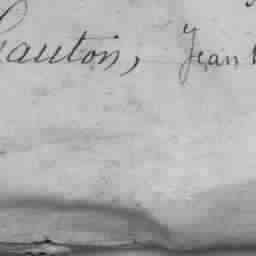 Gauton, Jean